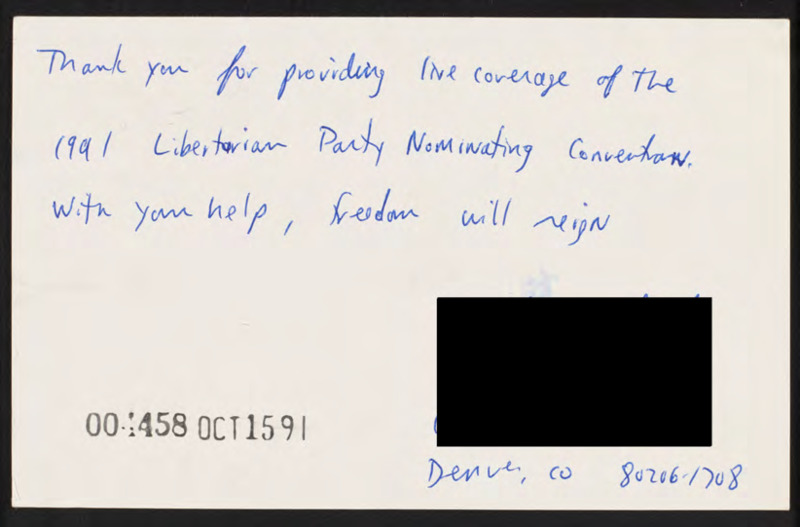 Thank you for providing live coverage of the
1991 Libertarian Party Nominating Convention.
With your help, freedom will reign
00458 OCT 15 91
Denver, CO 80206-1708